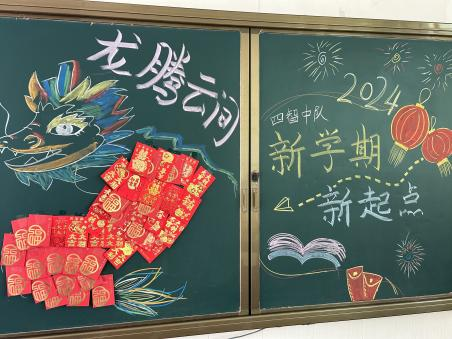 龙腾云间
2024
四智中队
新学期
新起点